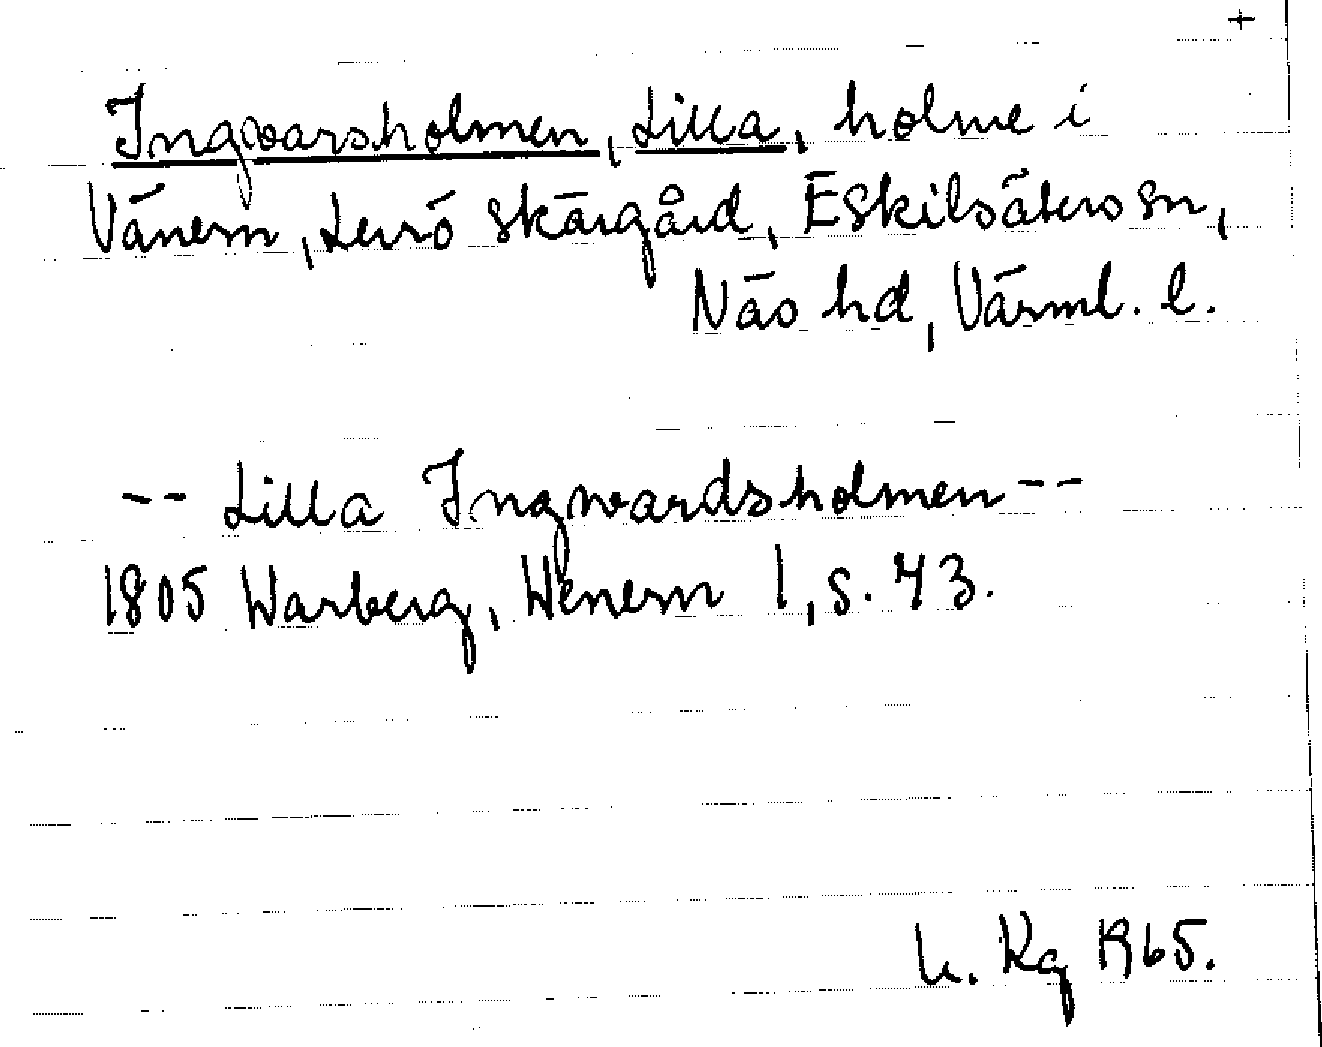 +
Ingvarsholmen, Lilla, holme i
Vänern, Lurö skärgård, Eskilsäters sn,
Näs hd, Värml. l.
-- Lilla Ingwardsholmen --
1805 Warberg, Wenern 1, s. 43.
Kg 1965.